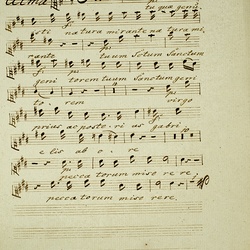 Alma tu qua geni
sti natura mirante natura mi,
rante tuum Sotum Sanctum
geni torem tuum Sanctum geni
torem virgo
prius ac posto.ri as gabri
e lis ab o re
peccatorum miso re re
peccatorum miso rere.